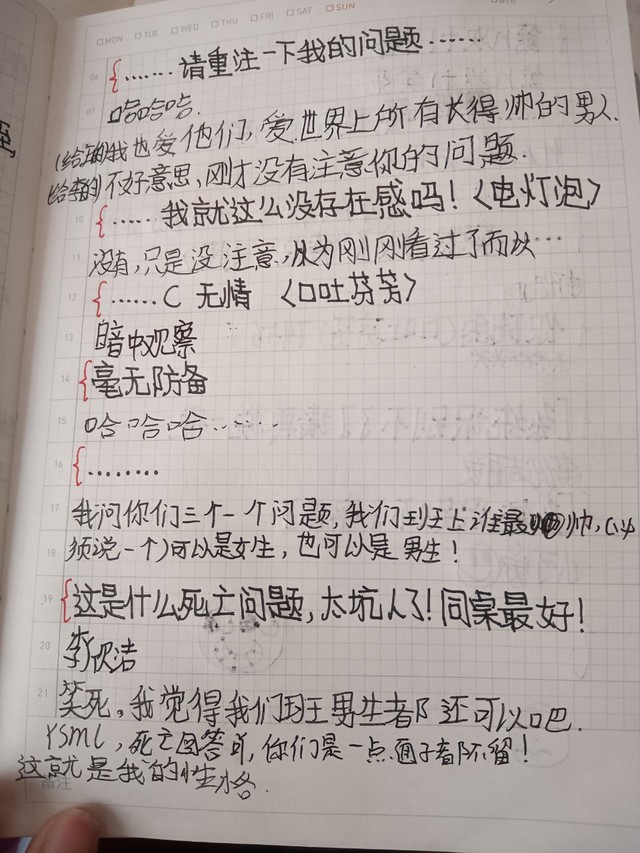 MON TUE WED THU FRI SAT SUN Date
{……请重注一下我的问题……
哈哈哈.
我也爱他们,爱世界上所有长得帅的男人.
不好意思、刚才没有注意你的问题.
{……我就这么没存在感吗!〈电灯泡〉
没有,只是没注意,以为刚刚看过了而以…
{……C 无情 〈口吐芬芳〉
暗中观察
{毫无防备
哈哈哈……
{………
我问你们三个一个问题,我们班上谁最帅,(必
须说一个)可以是女生,也可以是男生!
{这是什么死亡问题,太坑人了!同桌最好!
李欣洁
笑死,我觉得我们班男生都还可以吧.
YSML,死亡回答,你们是一点面子都不留!
这就是我的性格.
备注